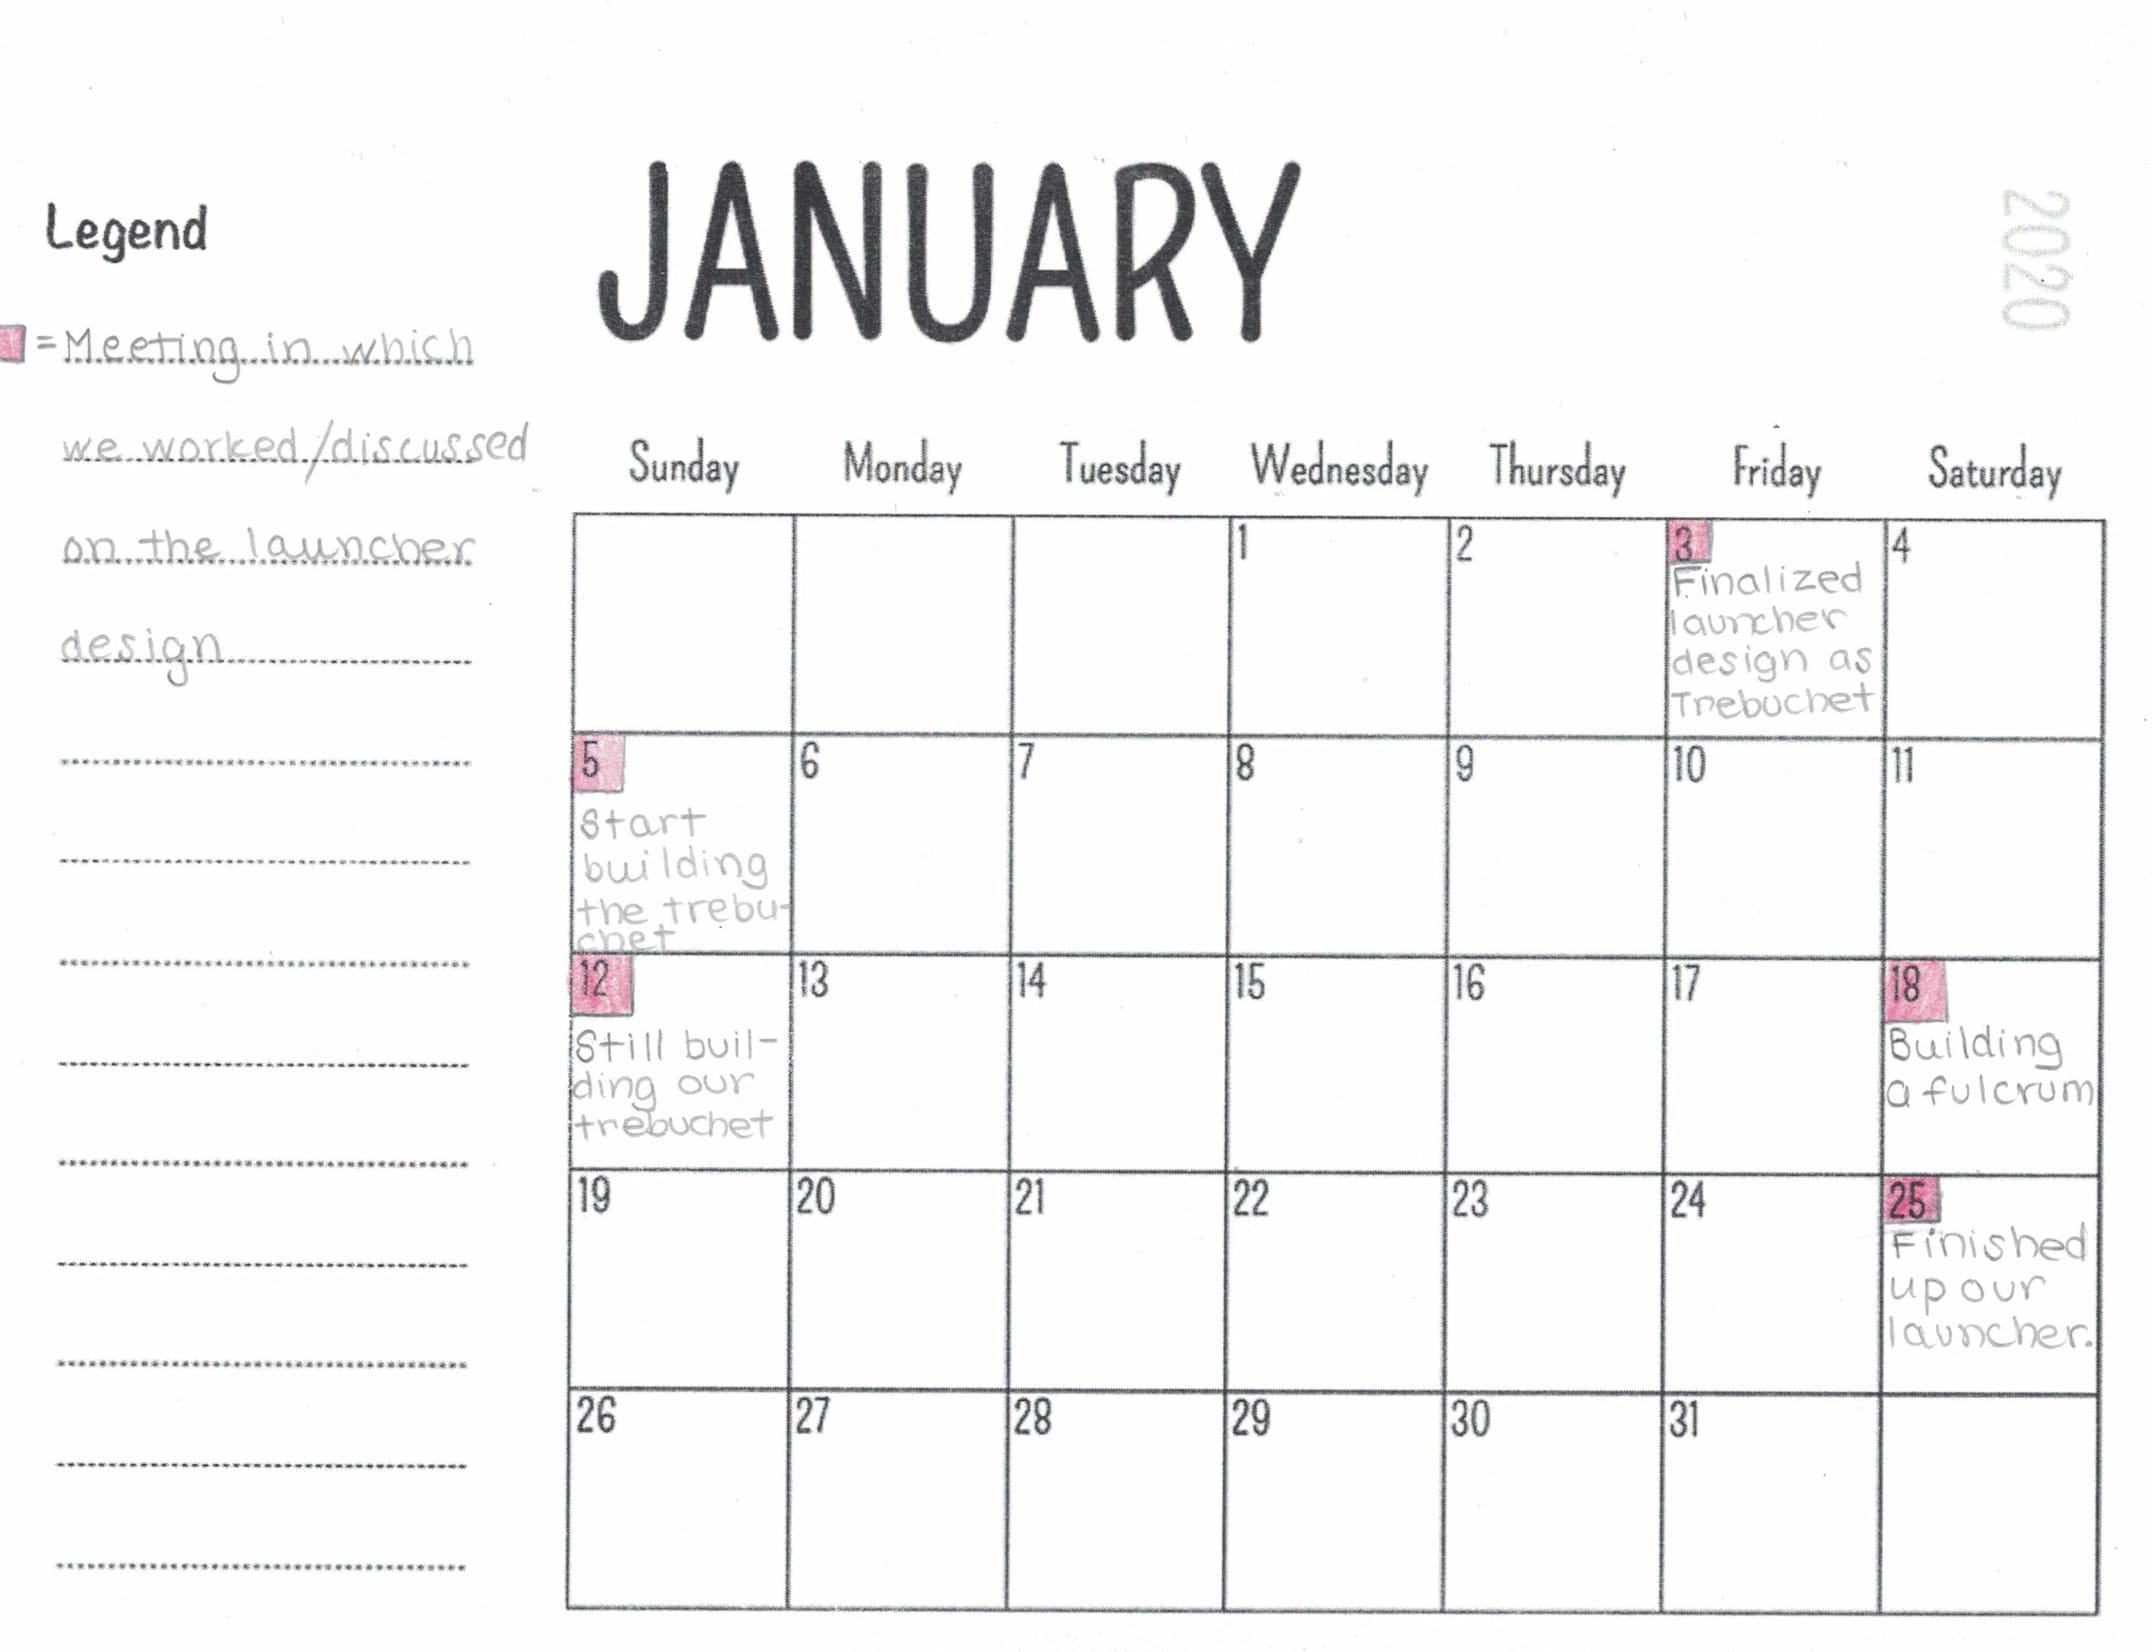 JANUARY
2020
Legend
=Meeting in which
we worked/discussed
on the launcher
design
Sunday Monday Tuesday Wednesday Thursday Friday Saturday
1 2 3 4
Finalized
launcher
design as
Trebuchet
5 6 7 8 9 10 11
Start
building
the trebu-
chet
12 13 14 15 16 17 18
Still buil-
ding our
trebuchet
Building
a fulcrum
19 20 21 22 23 24 25
Finished
up our
launcher.
26 27 28 29 30 31